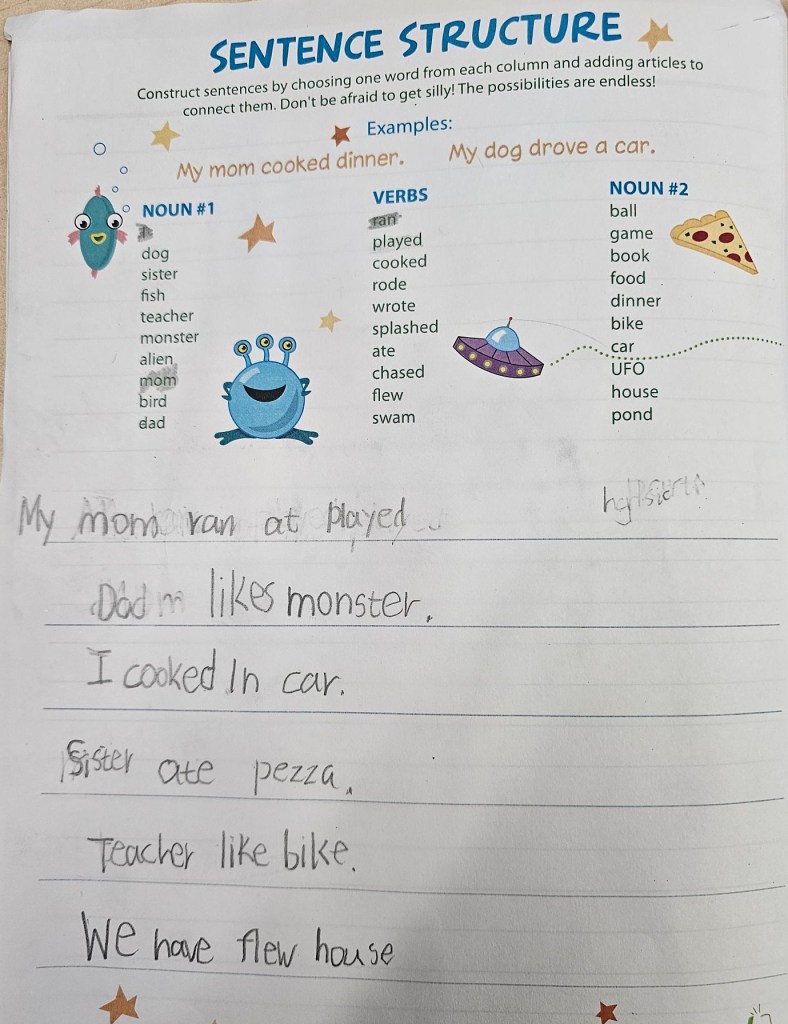 SENTENCE STRUCTURE
Construct sentences by choosing one word from each column and adding articles to
connect them. Don't be afraid to get silly! The possibilities are endless!
Examples:
My mom cooked dinner. My dog drove a car.
NOUN #1
dog
sister
fish
teacher
monster
alien
mom
bird
dad
VERBS
ran
played
cooked
rode
wrote
splashed
ate
chased
flew
swam
NOUN #2
ball
game
book
food
dinner
bike
car
UFO
house
pond
My mom ran at played
Dad likes monster.
I cooked In car.
Sister ate pezza.
Teacher like bike.
We have flew house